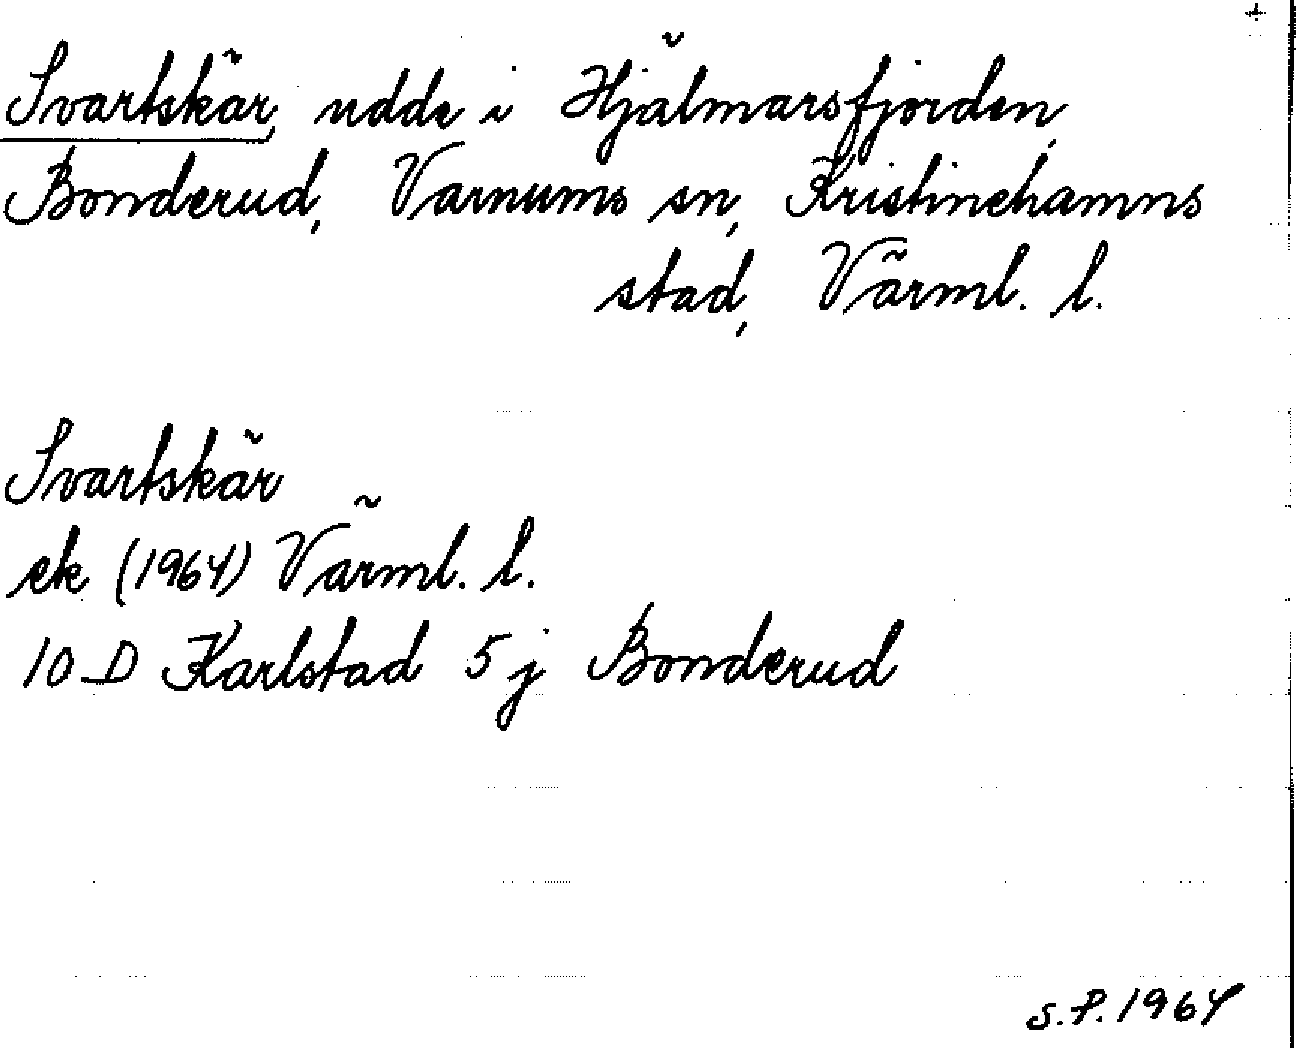 +
Svartskär, udde i Hjälmarsfjorden,
Bonderud, Varnums sn, Kristinehamns
stad, Värml. l.
Svartskär
ek (1964) Värml. l.
10 D Karlstad 5 j Bonderud
S.P. 1964